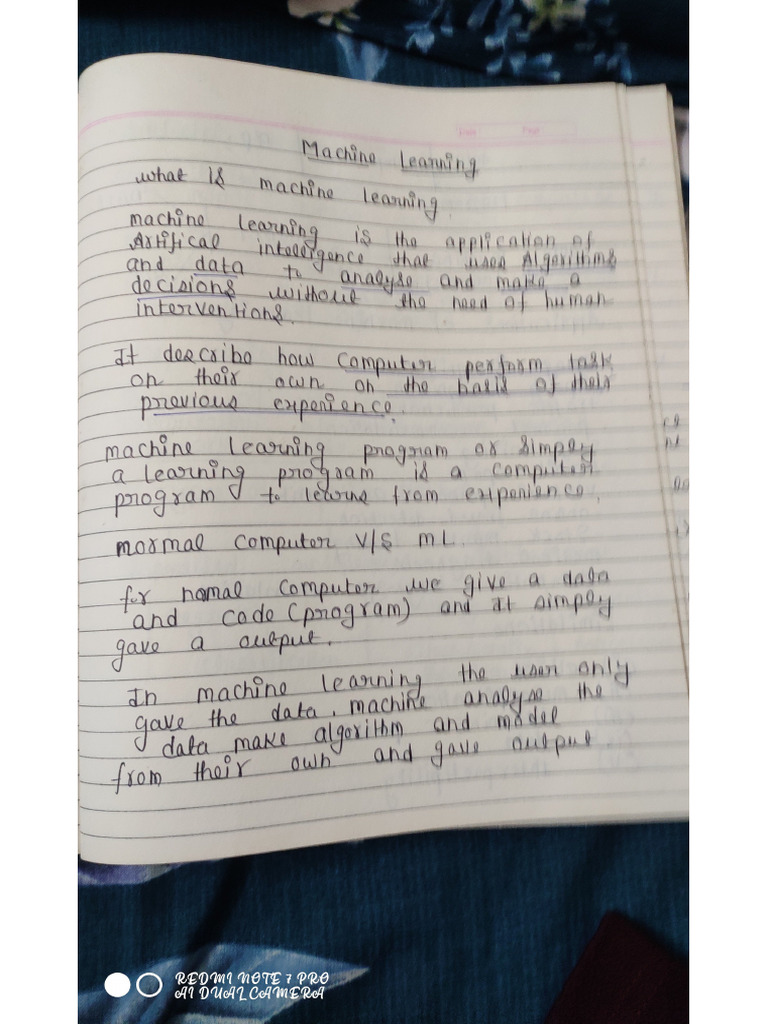 Machine Learning
what is machine learning
machine learning is the application of
Artifical intelligence that uses Algorithms
and data to analyse and make a
decisions without the need of human
interventions.
It describe how computer perform task
on their own on the basis of their
previous experience.
machine learning program or simpely
a learning program is a computer
program to learns from experience.
normal computer v/s ML
for nomal computer we give a data
and code (program) and it simpely
gave a output.
In machine learning the user only
gave the data. machine analyse the
data make algorithm and model
from their own and gave output
REDMI NOTE 7 PRO
AI DUAL CAMERA